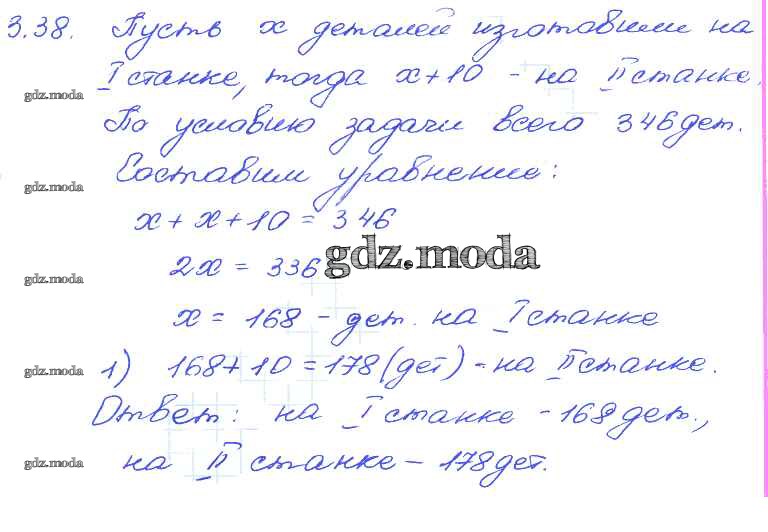 3.38. Пусть x деталей изготовили на
I станке, тогда x+10 - на II станке.
gdz.moda
По условию задачи всего 346 дет.
Составим уравнение:
gdz.moda
x + x + 10 = 346
gdz.moda
2x = 336
gdz.moda
x = 168 - дет. на I станке
1) 168 + 10 = 178 (дет) - на II станке.
gdz.moda
Ответ: на I станке - 168 дет.,
на II станке - 178 дет.
gdz.moda